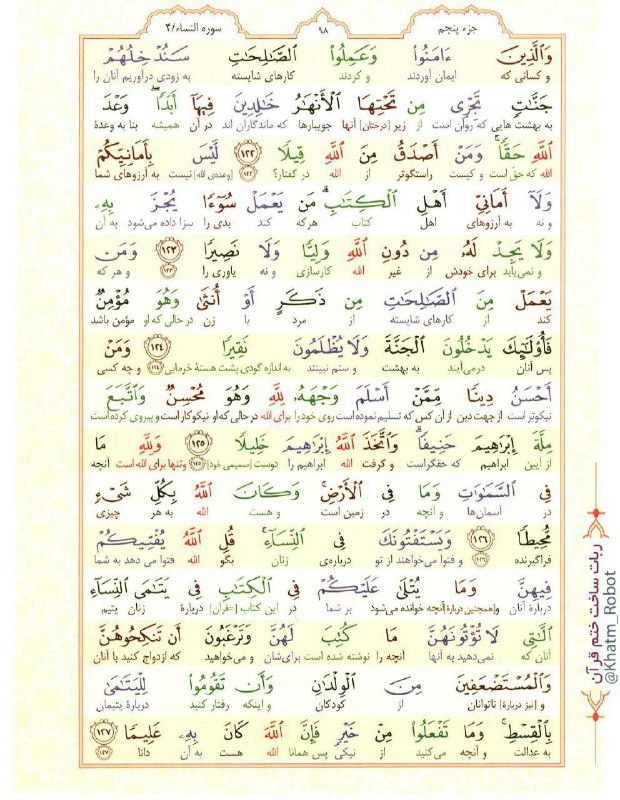 جزء پنجم
۹۸
سوره النساء/۴
وَٱلَّذِينَ ءَامَنُوا۟ وَعَمِلُوا۟ ٱلصَّـٰلِحَـٰتِ سَنُدْخِلُهُمْ
و کسانی که ایمان آوردند و کردند کارهای شایسته به زودی درآوریم آنان را
جَنَّـٰتٍ تَجْرِى مِن تَحْتِهَا ٱلْأَنْهَـٰرُ خَـٰلِدِينَ فِيهَآ أَبَدًا ۖ وَعْدَ
به بهشت هایی که روان است از زیر [درختان] آنها جویبارها که ماندگاران اند در آن همیشه بنا به وعدهٔ
ٱللَّهِ حَقًّا ۚ وَمَنْ أَصْدَقُ مِنَ ٱللَّهِ قِيلًا ﴿١٢٢﴾ لَّيْسَ بِأَمَانِيِّكُمْ
الله که حق است و کیست راستگوتر از الله در گفتار؟ (۱۲۲) [وعده‌ی الله] نیست به آرزوهای شما
وَلَآ أَمَانِىِّ أَهْلِ ٱلْكِتَـٰبِ ۗ مَن يَعْمَلْ سُوٓءًا يُجْزَ بِهِۦ
و نه به آرزوهای اهل کتاب هرکه کند بدی را سزا داده می‌شود به آن
وَلَا يَجِدْ لَهُۥ مِن دُونِ ٱللَّهِ وَلِيًّا وَلَا نَصِيرًا ﴿١٢٣﴾ وَمَن
و نمی‌یابد برای خودش از غیر الله کارسازی و نه یاوری را (۱۲۳) و هر که
يَعْمَلْ مِنَ ٱلصَّـٰلِحَـٰتِ مِن ذَكَرٍ أَوْ أُنثَىٰ وَهُوَ مُؤْمِنٌ
کند از کارهای شایسته از مرد یا زن در حالی که او مؤمن باشد
فَأُو۟لَـٰٓئِكَ يَدْخُلُونَ ٱلْجَنَّةَ وَلَا يُظْلَمُونَ نَقِيرًا ﴿١٢٤﴾ وَمَنْ
پس آنان درمی‌آیند به بهشت و ستم نبینند به اندازه گودی پشت هستهٔ خرمایی (۱۲۴) و چه کسی
أَحْسَنُ دِينًا مِّمَّنْ أَسْلَمَ وَجْهَهُۥ لِلَّهِ وَهُوَ مُحْسِنٌ وَٱتَّبَعَ
نیکوتر است از جهت دین از آن کس که تسلیم نموده است روی خود را برای الله در حالی که او نیکوکار است و پیروی کرده است
مِلَّةَ إِبْرَٰهِيمَ حَنِيفًا ۗ وَٱتَّخَذَ ٱللَّهُ إِبْرَٰهِيمَ خَلِيلًا ﴿١٢٥﴾ وَلِلَّهِ مَا
از آیین ابراهیم که حقگراست و گرفت الله ابراهیم را دوست [صمیمی خود] (۱۲۵) و تنها برای الله است آنچه
فِى ٱلسَّمَـٰوَٰتِ وَمَا فِى ٱلْأَرْضِ ۚ وَكَانَ ٱللَّهُ بِكُلِّ شَىْءٍ
در آسمان‌ها و آنچه در زمین است و هست الله به هر چیزی
مُّحِيطًا ﴿١٢٦﴾ وَيَسْتَفْتُونَكَ فِى ٱلنِّسَآءِ ۖ قُلِ ٱللَّهُ يُفْتِيكُمْ
فراگیرنده (۱۲۶) و فتوا می‌خواهند از تو درباره‌ی زنان بگو الله فتوا می دهد به شما
فِيهِنَّ وَمَا يُتْلَىٰ عَلَيْكُمْ فِى ٱلْكِتَـٰبِ فِى يَتَـٰمَى ٱلنِّسَآءِ
دربارهٔ آنان و [همچنین دربارهٔ] آنچه خوانده می‌شود بر شما در این کتاب [=قرآن] دربارهٔ زنان یتیم
ٱلَّـٰتِى لَا تُؤْتُونَهُنَّ مَا كُتِبَ لَهُنَّ وَتَرْغَبُونَ أَن تَنكِحُوهُنَّ
آنان که نمی‌دهید به آنها آنچه را نوشته شده است برای‌شان و می‌خواهید که ازدواج کنید با آنان
وَٱلْمُسْتَضْعَفِينَ مِنَ ٱلْوِلْدَٰنِ وَأَن تَقُومُوا۟ لِلْيَتَـٰمَىٰ
و [نیز دربارهٔ] ناتوانان از کودکان و اینکه رفتار کنید دربارهٔ یتیمان
بِٱلْقِسْطِ ۚ وَمَا تَفْعَلُوا۟ مِنْ خَيْرٍ فَإِنَّ ٱللَّهَ كَانَ بِهِۦ عَلِيمًا ﴿١٢٧﴾
به عدالت و آنچه می‌کنید از نیکی پس همانا الله هست به آن دانا (۱۲۷)
ربات ساخت ختم قرآن
@Khatm_Robot